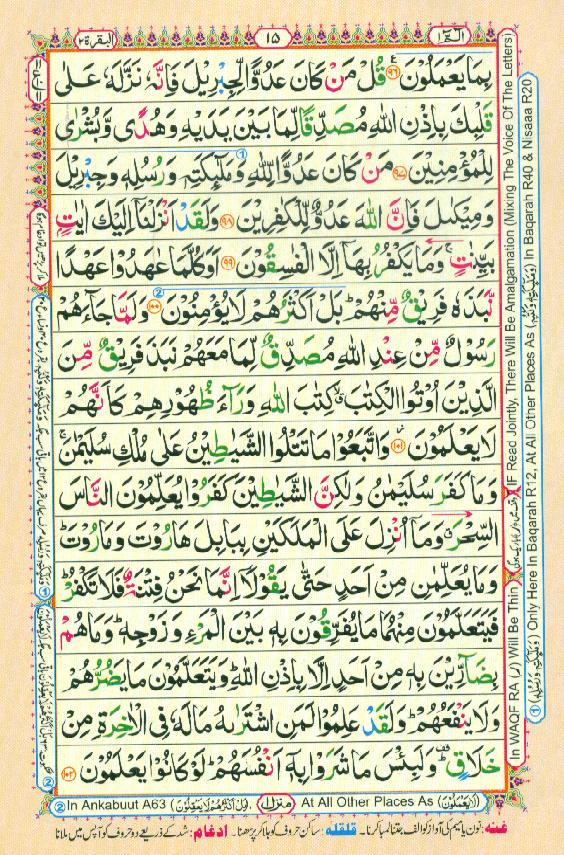 البقرة ٢
١٥
الٓمّٓ ١
بِمَا يَعْمَلُوْنَ ۹۶ قُلْ مَنْ كَانَ عَدُوًّا لِّجِبْرِيْلَ فَاِنَّهٗ نَزَّلَهٗ عَلٰى
قَلْبِكَ بِاِذْنِ اللّٰهِ مُصَدِّقًا لِّمَا بَيْنَ يَدَيْهِ وَهُدًى وَّبُشْرٰى
لِلْمُؤْمِنِيْنَ ۹۷ مَنْ كَانَ عَدُوًّا لِّلّٰهِ وَمَلٰٓئِكَتِهٖ وَرُسُلِهٖ وَجِبْرِيْلَ
وَمِيْكٰىلَ فَاِنَّ اللّٰهَ عَدُوٌّ لِّلْكٰفِرِيْنَ ۹۸ وَلَقَدْ اَنْزَلْنَآ اِلَيْكَ اٰيٰتٍۭ
بَيِّنٰتٍ ۚ وَمَا يَكْفُرُ بِهَآ اِلَّا الْفٰسِقُوْنَ ۹۹ اَوَكُلَّمَا عٰهَدُوْا عَهْدًا
نَّبَذَهٗ فَرِيْقٌ مِّنْهُمْ ؕ بَلْ اَكْثَرُهُمْ لَا يُؤْمِنُوْنَ ۱۰۰ وَلَمَّا جَآءَهُمْ
رَسُوْلٌ مِّنْ عِنْدِ اللّٰهِ مُصَدِّقٌ لِّمَا مَعَهُمْ نَبَذَ فَرِيْقٌ مِّنَ
الَّذِيْنَ اُوْتُوا الْكِتٰبَ ۙ كِتٰبَ اللّٰهِ وَرَآءَ ظُهُوْرِهِمْ كَاَنَّهُمْ
لَا يَعْلَمُوْنَ ۱۰۱ وَاتَّبَعُوْا مَا تَتْلُوا الشَّيٰطِيْنُ عَلٰى مُلْكِ سُلَيْمٰنَ ۚ
وَمَا كَفَرَ سُلَيْمٰنُ وَلٰكِنَّ الشَّيٰطِيْنَ كَفَرُوْا يُعَلِّمُوْنَ النَّاسَ
السِّحْرَ ۗ وَمَآ اُنْزِلَ عَلَى الْمَلَكَيْنِ بِبَابِلَ هَارُوْتَ وَمَارُوْتَ ؕ
وَمَا يُعَلِّمٰنِ مِنْ اَحَدٍ حَتّٰى يَقُوْلَآ اِنَّمَا نَحْنُ فِتْنَةٌ فَلَا تَكْفُرْ ؕ
فَيَتَعَلَّمُوْنَ مِنْهُمَا مَا يُفَرِّقُوْنَ بِهٖ بَيْنَ الْمَرْءِ وَزَوْجِهٖ ؕ وَمَا هُمْ
بِضَآرِّيْنَ بِهٖ مِنْ اَحَدٍ اِلَّا بِاِذْنِ اللّٰهِ ؕ وَيَتَعَلَّمُوْنَ مَا يَضُرُّهُمْ
وَلَا يَنْفَعُهُمْ ؕ وَلَقَدْ عَلِمُوْا لَمَنِ اشْتَرٰىهُ مَا لَهٗ فِى الْاٰخِرَةِ مِنْ
خَلَاقٍ ؕ وَلَبِئْسَ مَا شَرَوْا بِهٖٓ اَنْفُسَهُمْ ؕ لَوْ كَانُوْا يَعْلَمُوْنَ ۱۰۲
In WAQF RA (ر) Will Be Thin
IF Read Jointly, There Will Be Amalgamation (Mixing The Voice Of The Letters)
① (وَمَلٰٓئِكَتِهٖ وَرُسُلِهٖ) Only Here In Baqarah R12, At All Other Places As (وَمَلٰٓئِكَتِهٖ وَكُتُبِهٖ) In Baqarah R40 & Nisaaa R20
② In Ankabuut A63 (بَلْ اَكْثَرُهُمْ لَا يَعْقِلُوْنَ) At All Other Places As (لَا يَعْلَمُوْنَ)
منزل ١
غنه: نون یا میم کی آواز کو الف جتنا لمبا کرنا۔ قلقله: ساکن حروف کو ہلا کر پڑھنا۔ ادغام: شد کے ذریعے دو حروف کو آپس میں ملانا